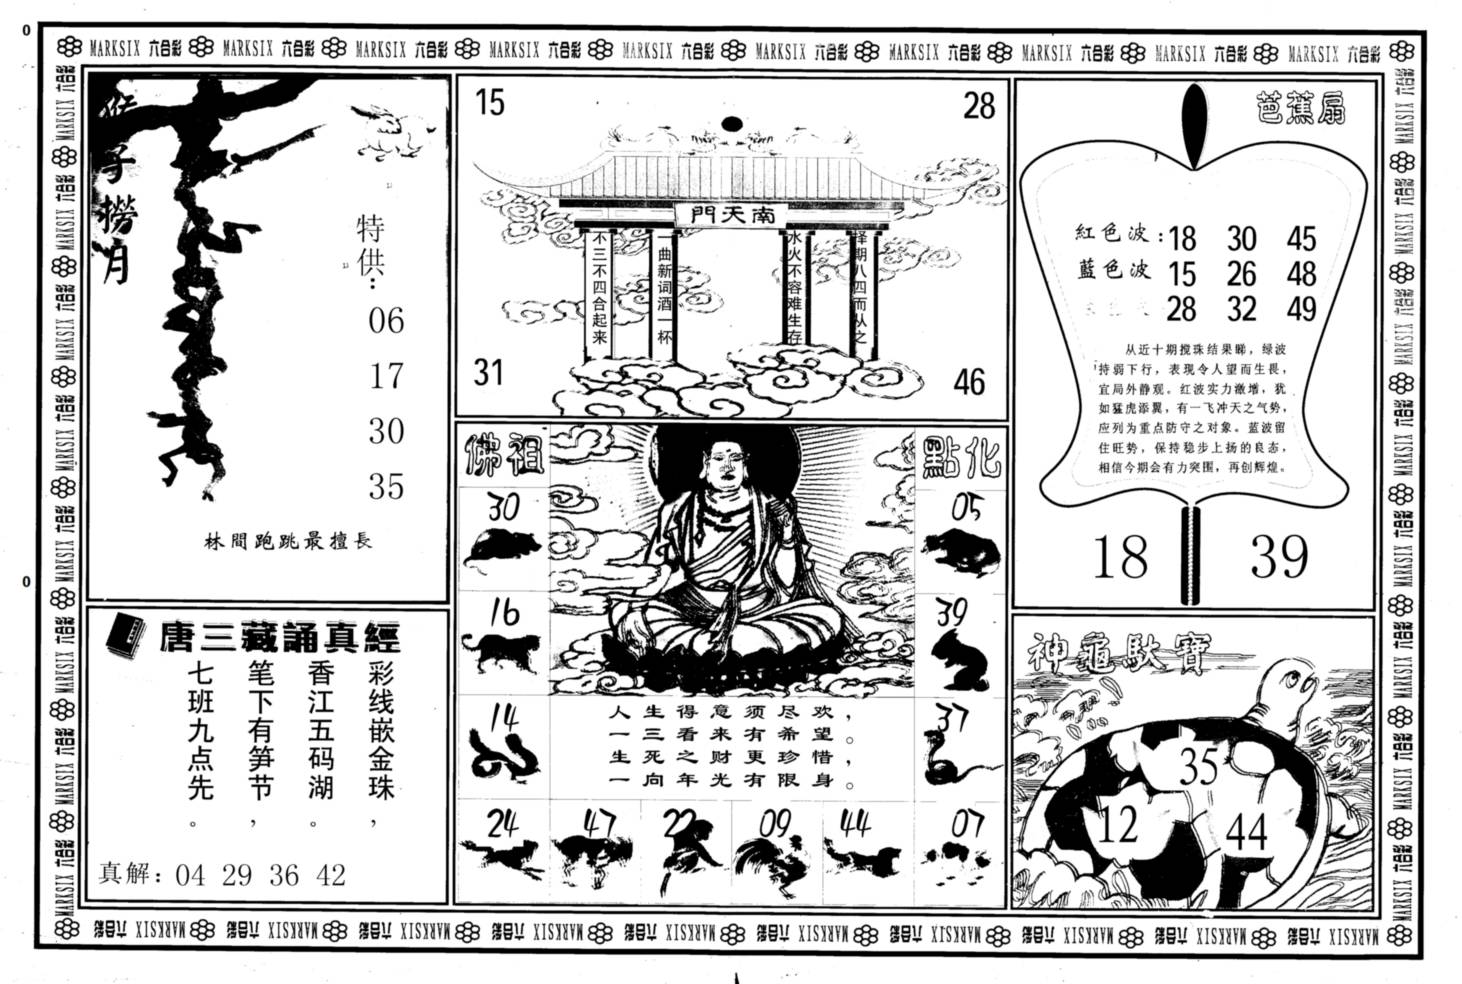 MARKSIX 六合彩 MARKSIX 六合彩 MARKSIX 六合彩 MARKSIX 六合彩 MARKSIX 六合彩 MARKSIX 六合彩 MARKSIX 六合彩 MARKSIX 六合彩 MARKSIX 六合彩 MARKSIX 六合彩
猴子撈月
特供:
06
17
30
35
林間跑跳最擅長
唐三藏誦真經
彩线嵌金珠，
香江五码湖。
笔下有笋节，
七班九点先。
真解: 04 29 36 42
15
28
南天門
择期八四而从之
水火不容难生存
一曲新词酒一杯
不三不四合起来
31
46
佛祖
點化
30
05
16
39
14
37
人生得意须尽欢，
一三看来有希望。
生死之财更珍惜，
一向年光有限身。
24
47
22
09
44
07
芭蕉扇
紅色波: 18 30 45
藍色波 15 26 48
28 32 49
从近十期搅珠结果睇，绿波
持弱下行，表现令人望而生畏，
宜局外静观。红波实力激增，犹
如猛虎添翼，有一飞冲天之气势，
应列为重点防守之对象。蓝波留
住旺势，保持稳步上扬的良态，
相信今期会有力突围，再创辉煌。
18
39
神龜馱寶
35
12
44
0
0